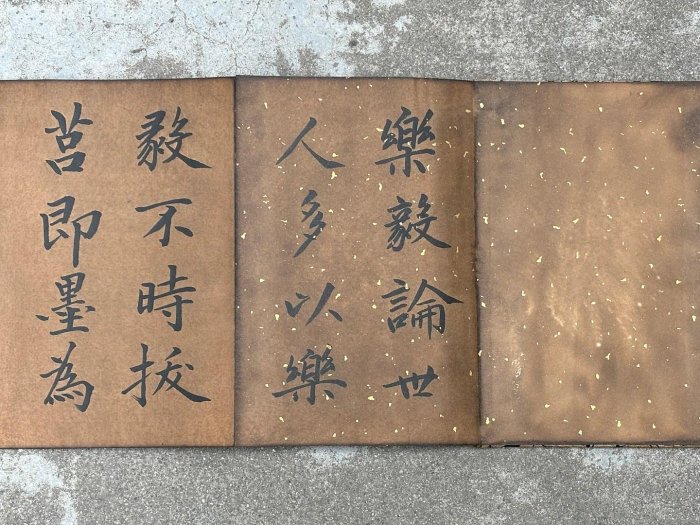 樂毅論世
人多以樂
毅不時拔
莒即墨為